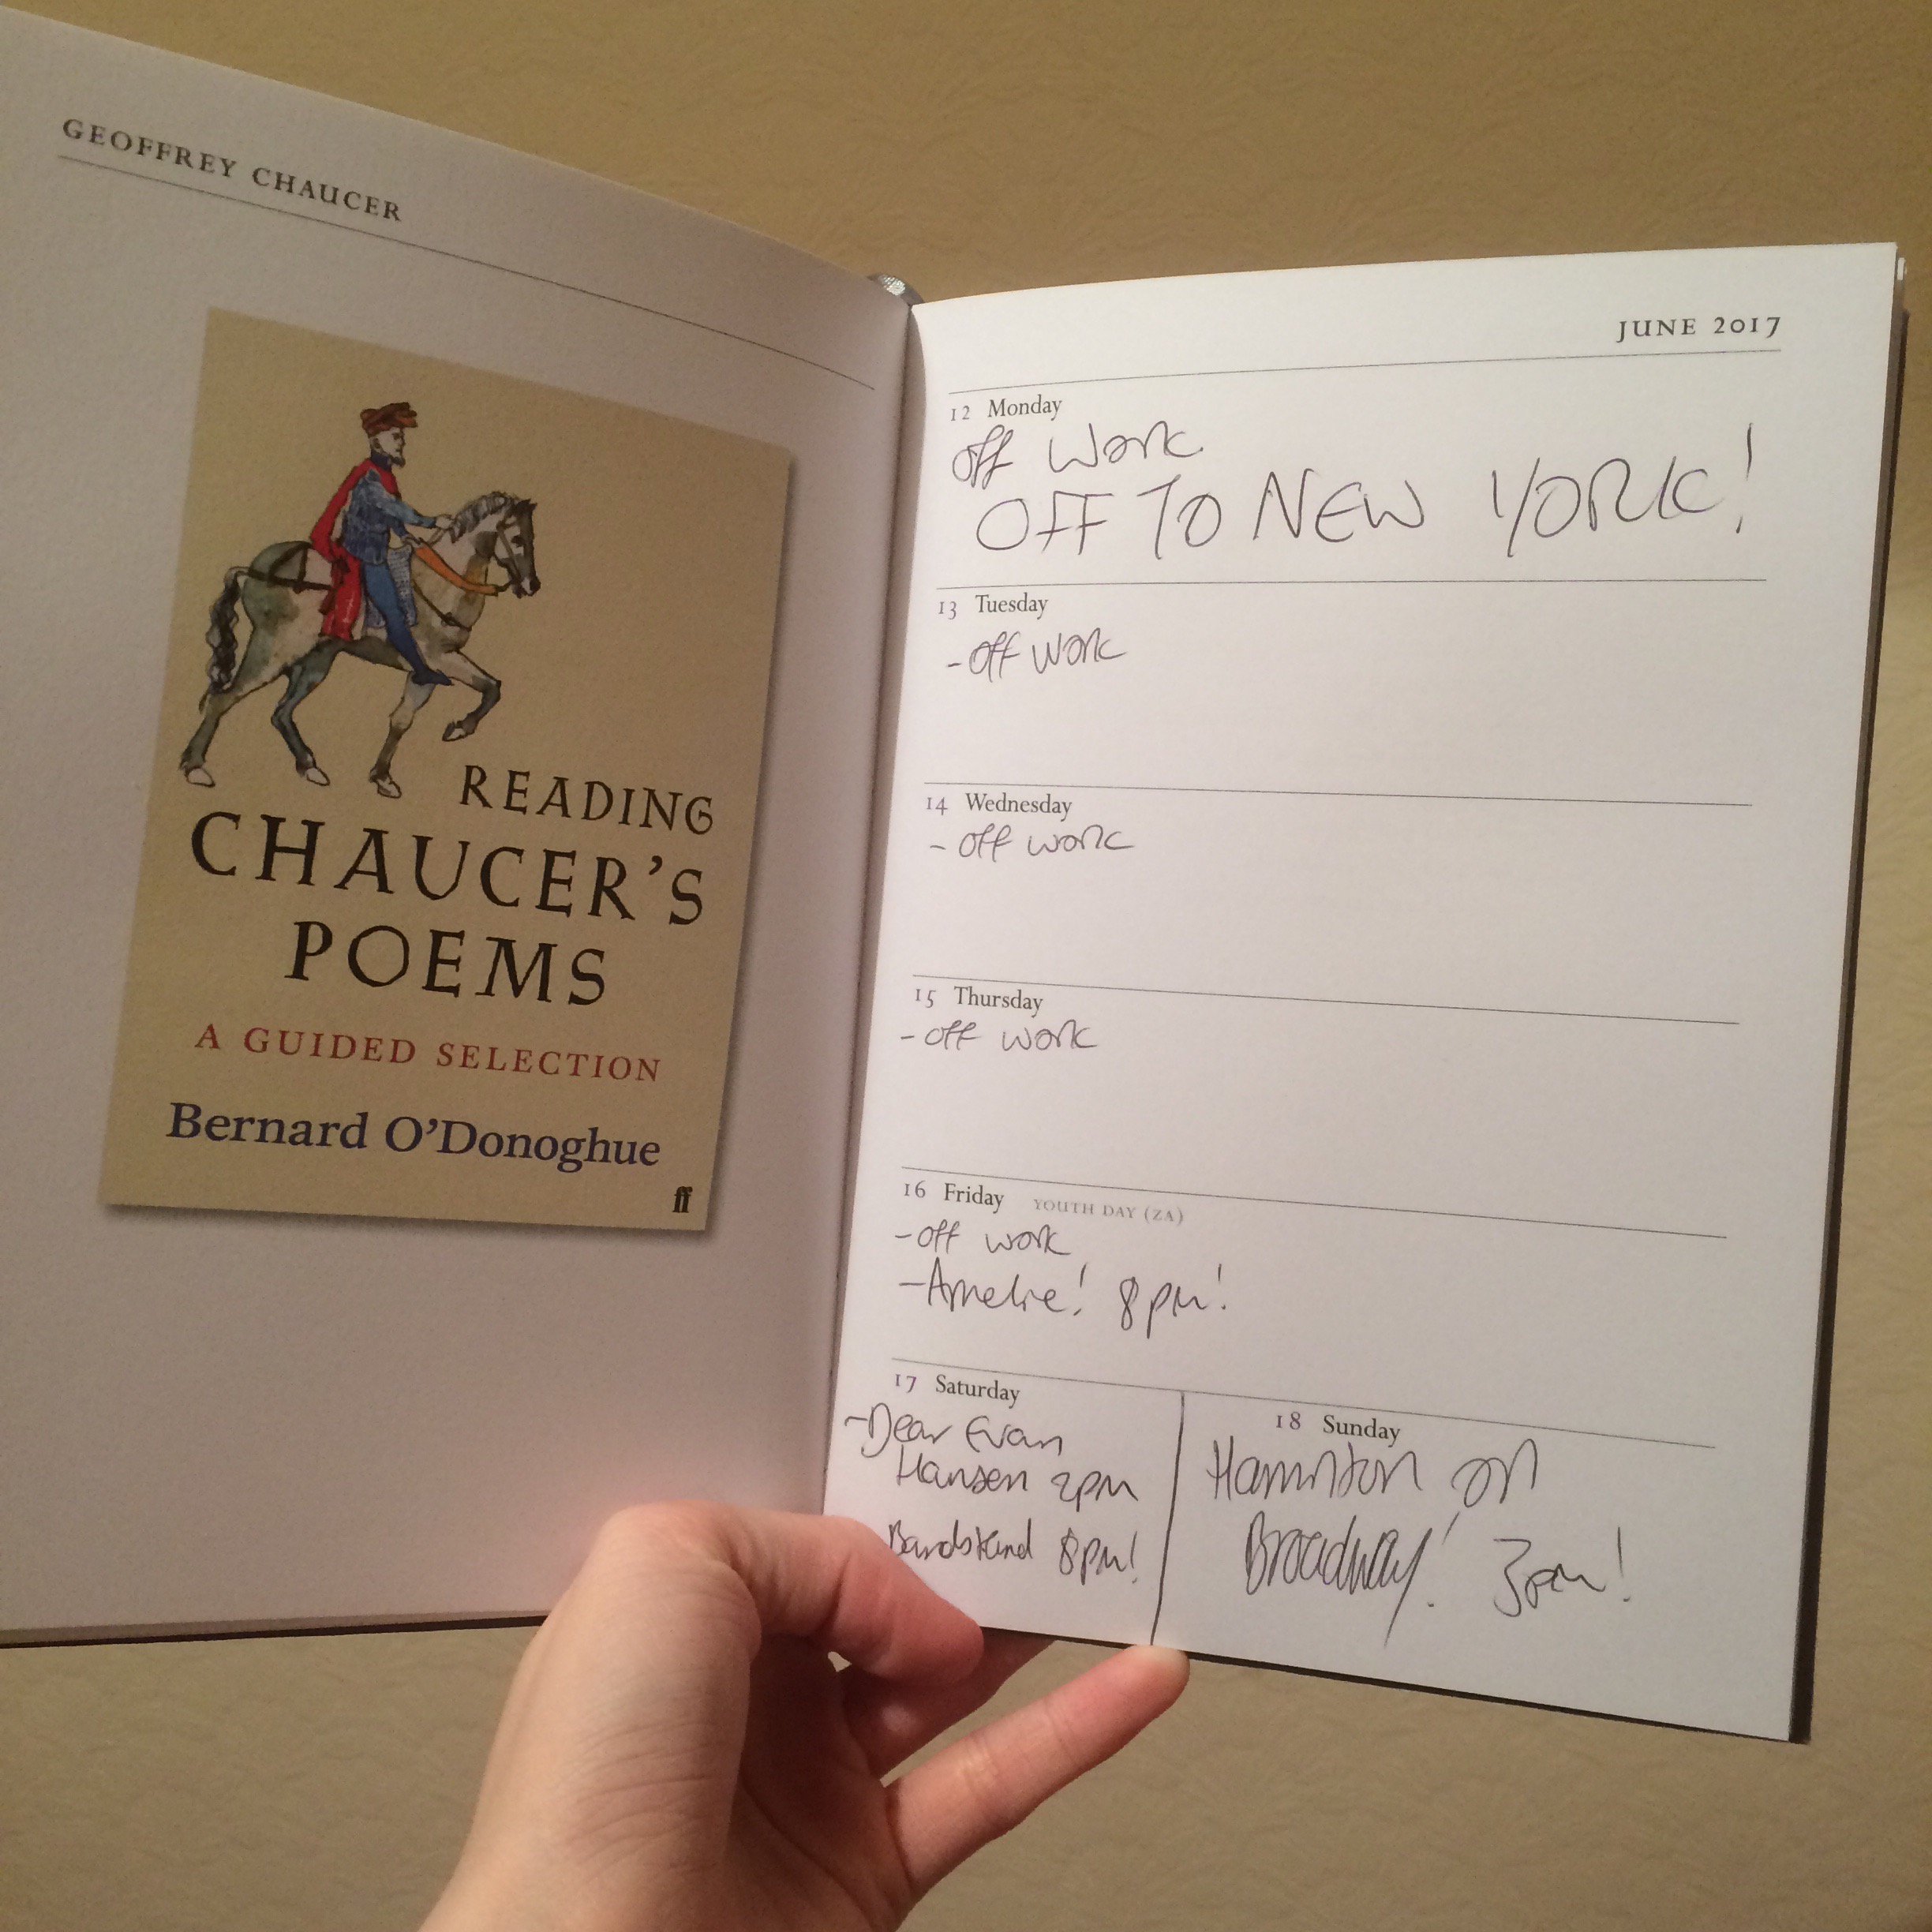 GEOFFREY CHAUCER
READING
CHAUCER'S
POEMS
A GUIDED SELECTION
Bernard O'Donoghue
ff
JUNE 2017
12 Monday
off work
OFF TO NEW YORK!
13 Tuesday
- off work
14 Wednesday
- off work
15 Thursday
- off work
16 Friday YOUTH DAY (ZA)
- off work
- Amelie! 8pm!
17 Saturday
- Dear Evan
Hansen 2pm
Bandstand 8pm!
18 Sunday
Hamilton on
Broadway! 3pm!